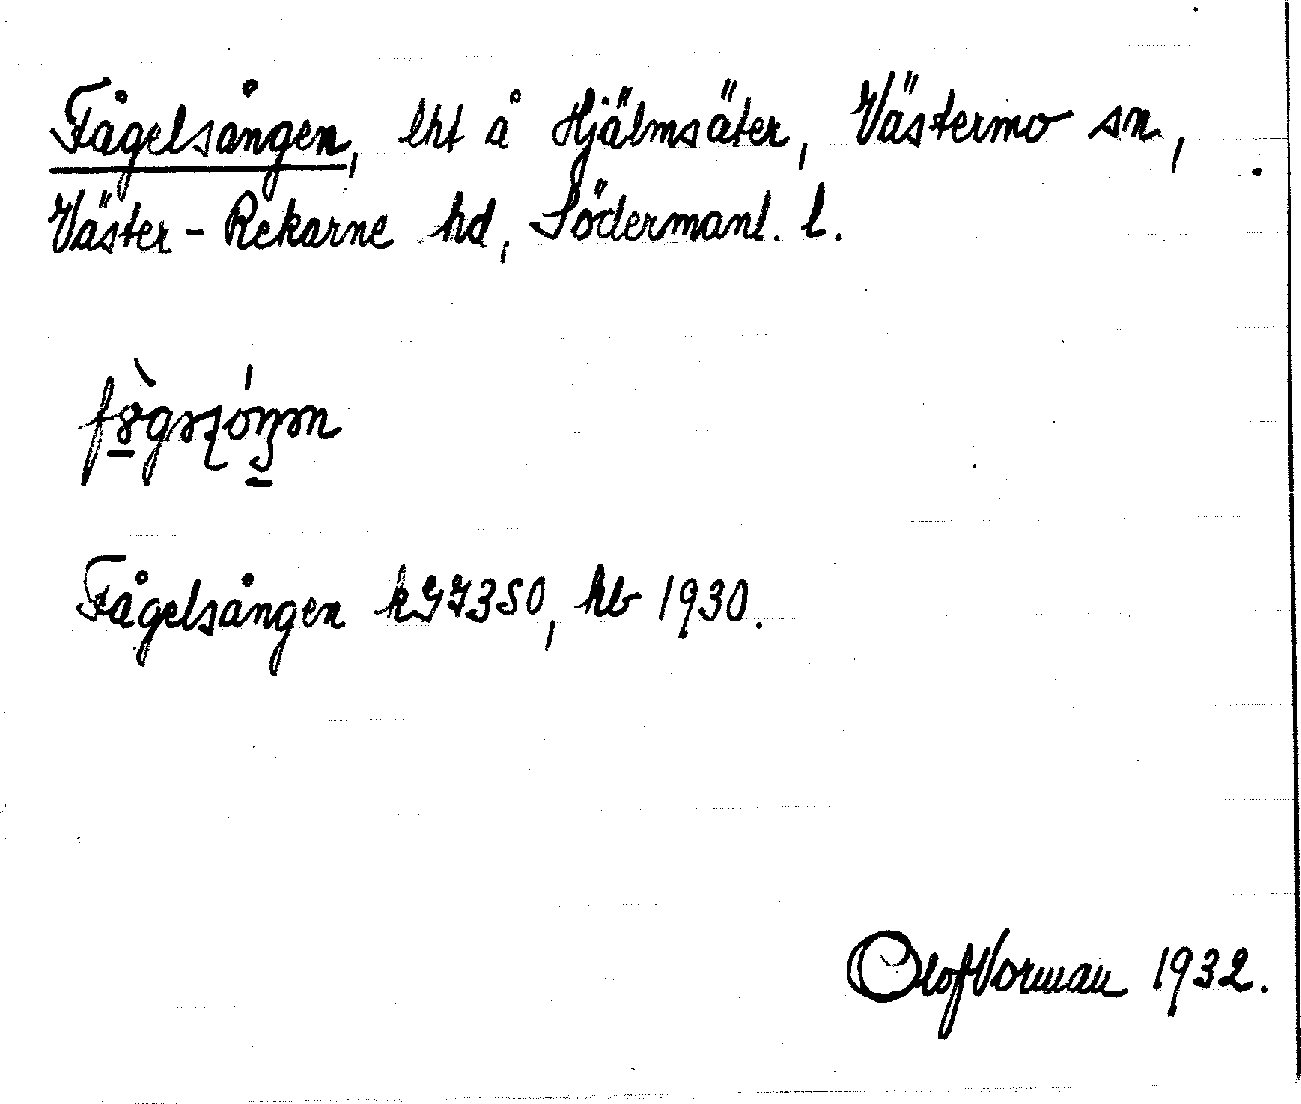 Fågelsången, lht å Hjälmsäter, Västermo sn,
Väster-Rekarne hd, Södermanl. l.
Fågelsången hb 1930.
Olof Norman 1932.